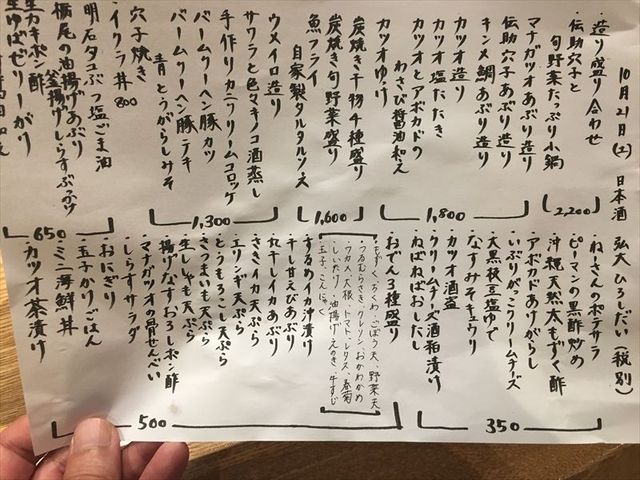 10月21日(土) 日本酒 弘大 ひろしだい (税別)
・造り盛り合わせ
・伝助穴子と
旬野菜たっぷり小鍋
2,200
マナガツオあぶり造り
伝助穴子あぶり造り
キンメ鯛あぶり造り
カツオ造り
カツオ塩たたき
カツオとアボカドの
わさび醤油和え
カツオゆっけ
1,800
炭焼き干物4種盛り
炭焼き旬野菜盛り
魚フライ
自家製タルタルソース
1,600
ウメイロ造り
サワラと色々キノコ酒蒸し
手作りカニクリームコロッケ
バームクーヘン豚カツ
バームクーヘン豚テキ
青とうがらしみそ
1,300
穴子焼き
・イクラ丼 800
明石タコぶつ塩ごま油
栃尾の油揚げあぶり
釜揚げしらすぶっかけ
生カキポン酢
生ゆばゼリーがけ
650
ねーさんのポテサラ
ピーマンの黒酢炒め
沖縄天然太もずく酢
アボカドあけがらし
いぶりがっこクリームチーズ
大黒枝豆塩ゆで
なすみそキュウリ
カツオ酒盗
クリームチーズ酒粕漬け
ねばねばおしたし
350
おでん3種盛り
・もずく、ちくわ、ごぼう天、野菜天
つるむらさき、クレソン、おかわかめ
ワカメ、大根、トマト、レタス、春菊
しいたけ、油揚げ、えのき、牛すじ
玉子、こんにゃく
するめイカ沖漬け
干し甘えびあぶり
丸干しイカあぶり
さきイカ天ぷら
エリンギ天ぷら
とうもろこし天ぷら
さつまいも天ぷら
生しいも天ぷら
揚げなすおろしポン酢
マナガツオの骨せんべい
しらすサラダ
・おにぎり
・玉子かけごはん
・ミニ海鮮丼
・カツオ茶漬け
500